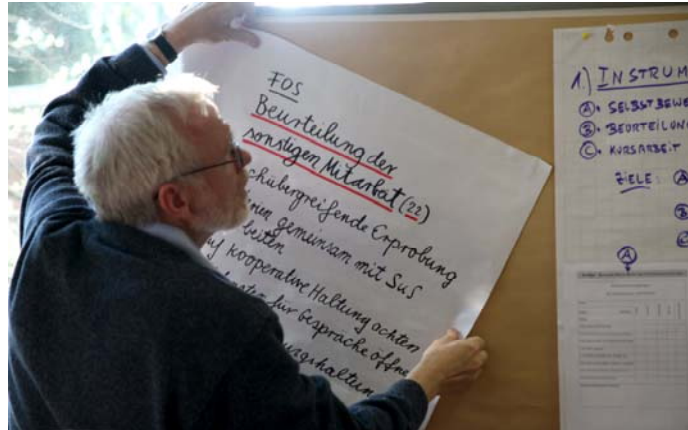 FOS
Beurteilung der
sonstigen Mitarbeit (22)
chübergreifende Erprobung
nen gemeinsam mit SuS
beiten
uf kooperative Haltung achten
für Gespräche öffne
ungshaltun
1.) INSTRUM
A. SELBSTBEWE
B. BEURTEILUNG
C. KURSARBEIT
ZIELE: A
B
C
A